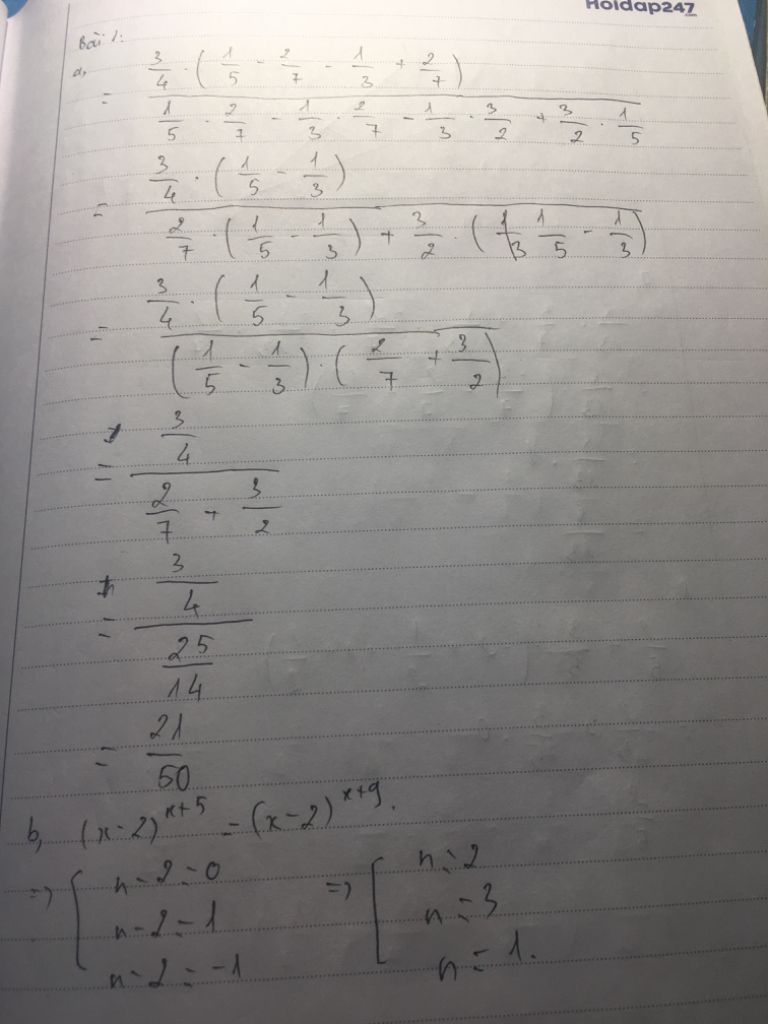 Hoidap247.com
Bài 1:
a, 3/4 . (1/5 - 2/7 - 1/3 + 2/7)
= 1/5 . 2/7 - 1/3 . 2/7 - 1/3 . 3/2 + 3/2 . 1/5
3/4 . (1/5 - 1/3)
= 2/7 . (1/5 - 1/3) + 3/2 . (1/5 - 1/3)
3/4 . (1/5 - 1/3)
= (1/5 - 1/3) . (2/7 + 3/2)
3/4
= 2/7 + 3/2
3/4
= 25/14
= 21/50
b, (x-2)^(x+5) = (x-2)^(x+9).
=> [ x-2=0 => [ x=2
x-2=1 x=3
x-2=-1 x=1.